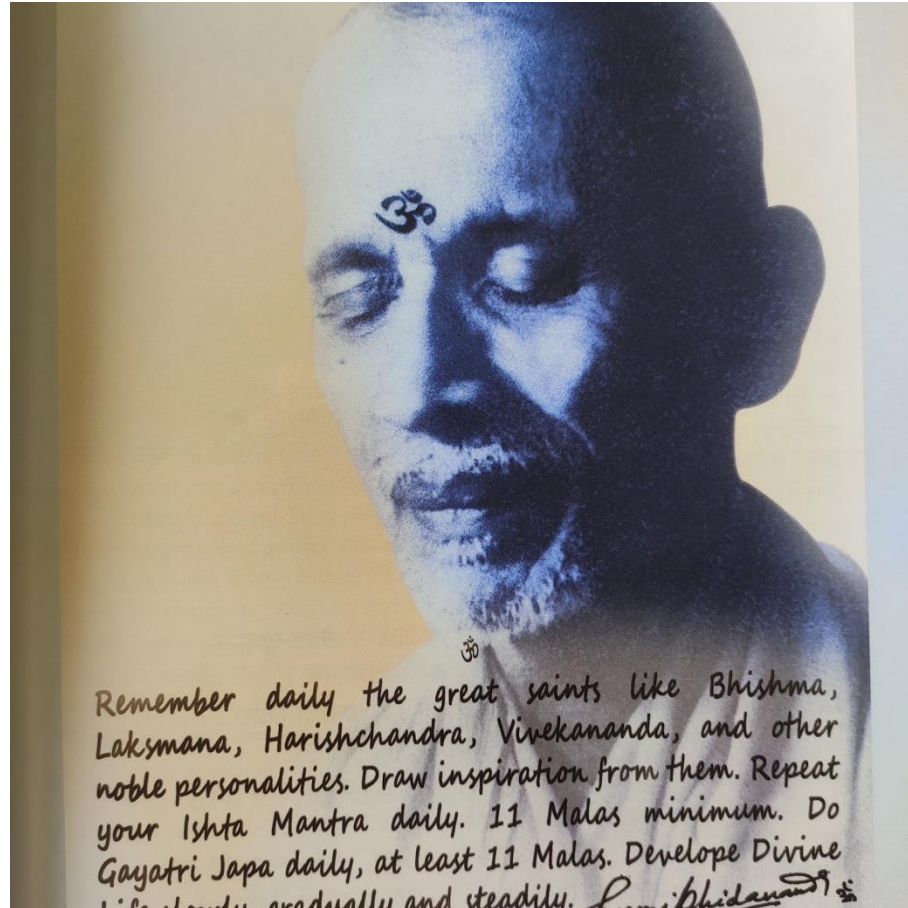 ॐ
ॐ
Remember daily the great saints like Bhishma,
Laksmana, Harishchandra, Vivekananda, and other
noble personalities. Draw inspiration from them. Repeat
your Ishta Mantra daily. 11 Malas minimum. Do
Gayatri Japa daily, at least 11 Malas. Develope Divine
Life slowly, gradually and steadily.
ॐ